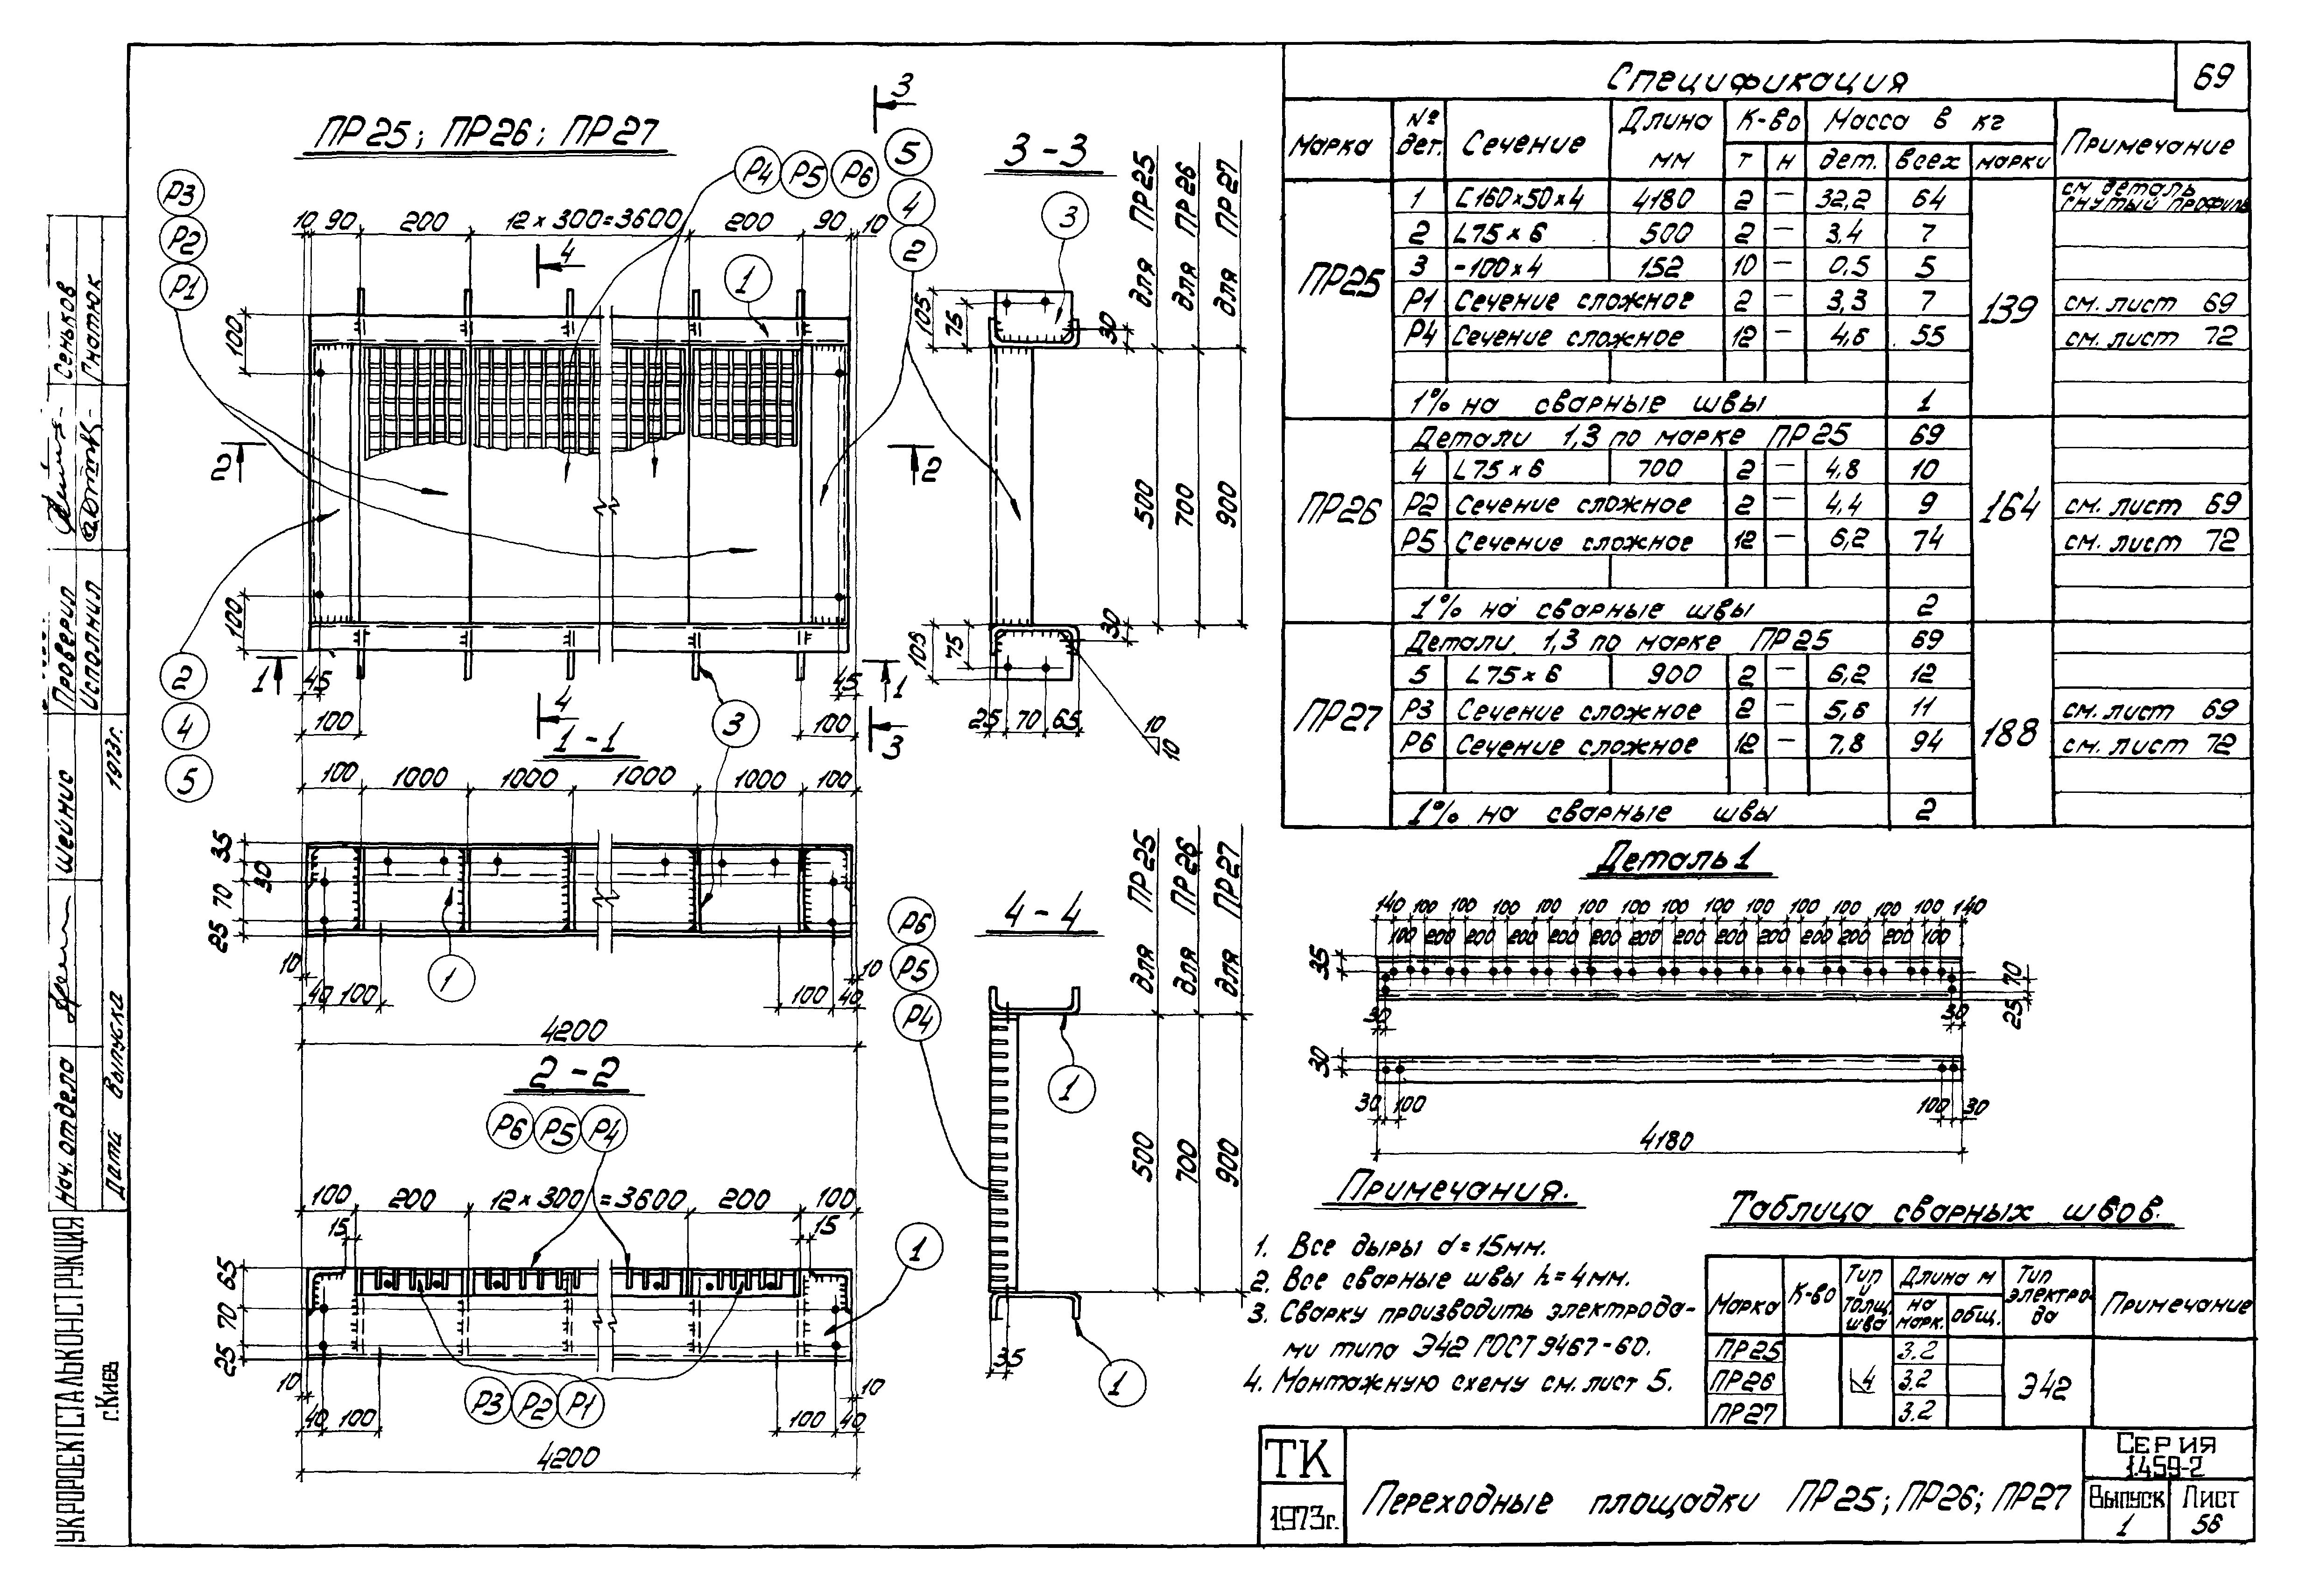 69
Спецификация
Марка № дет. Сечение Длина мм К-во Масса в кг Примечание
т н дет. всех марки
ПР25 139
1 [160×50×4 4180 2 – 32,2 64 см деталь гнутый профиль
2 L75×6 500 2 – 3,4 7
3 -100×4 152 10 – 0,5 5
Р1 Сечение сложное 2 – 3,3 7 см. лист 69
Р4 Сечение сложное 12 – 4,6 55 см. лист 72
1% на сварные швы 1
ПР26 164
Детали 1,3 по марке ПР25 69
4 L75×6 700 2 – 4,8 10
Р2 Сечение сложное 2 – 4,4 9 см. лист 69
Р5 Сечение сложное 12 – 6,2 74 см. лист 72
1% на сварные швы 2
ПР27 188
Детали 1,3 по марке ПР25 69
5 L75×6 900 2 – 6,2 12
Р3 Сечение сложное 2 – 5,6 11 см. лист 69
Р6 Сечение сложное 12 – 7,8 94 см. лист 72
1% на сварные швы 2
ПР25; ПР26; ПР27
3
Р4 Р5 Р6 5
Р3 4
Р2 2
Р1
10 90 200 12×300=3600 200 90 10
4
1
100
2 2
100
2
4
5
1 45 45 1
100 4 3 100 3
1-1
100 1000 1000 1000 1000 100
35
30
70
25
10 1 10
40 100 100 40
4200
2-2
Р6 Р5 Р4
100 200 12×300=3600 200 100
15 15
1
65
70
25
10 10
Р3 Р2 Р1
40 100 100 40
4200
3-3
для ПР25
для ПР26
для ПР27
3
105 75 30
500 700 900
105 75 30
25 70 65
10
10
4-4
для ПР25
для ПР26
для ПР27
Р6
Р5
Р4
1
500 700 900
35
1
Деталь 1
140 100 100 100 100 100 100 100 100 100 100 100 100 100 140
100 200 200 200 200 200 200 200 200 200 200 200 100
35 70
25
30 30
30
30 100 100 30
4180
Примечания.
1. Все дыры d=15мм.
2. Все сварные швы h=4мм.
3. Сварку производить электрода-
ми типа Э42 ГОСТ 9467-60.
4. Монтажную схему см. лист 5.
Таблица сварных швов.
Марка К-во Тип и толщ. шва Длина м Тип электро-да Примечание
на марк. общ.
ПР25 3.2
ПР26 4 3.2 Э42
ПР27 3.2
ТК
1973г.
Переходные площадки ПР25; ПР26; ПР27
Серия
1.459-2
Выпуск 1
Лист 56
УКРПРОЕКТСТАЛЬКОНСТРУКЦИЯ
г. Киев
Нач. отдела Шейнис
Дата выпуска 1973г.
Проверил Сеньков
Исполнил Гнатюк